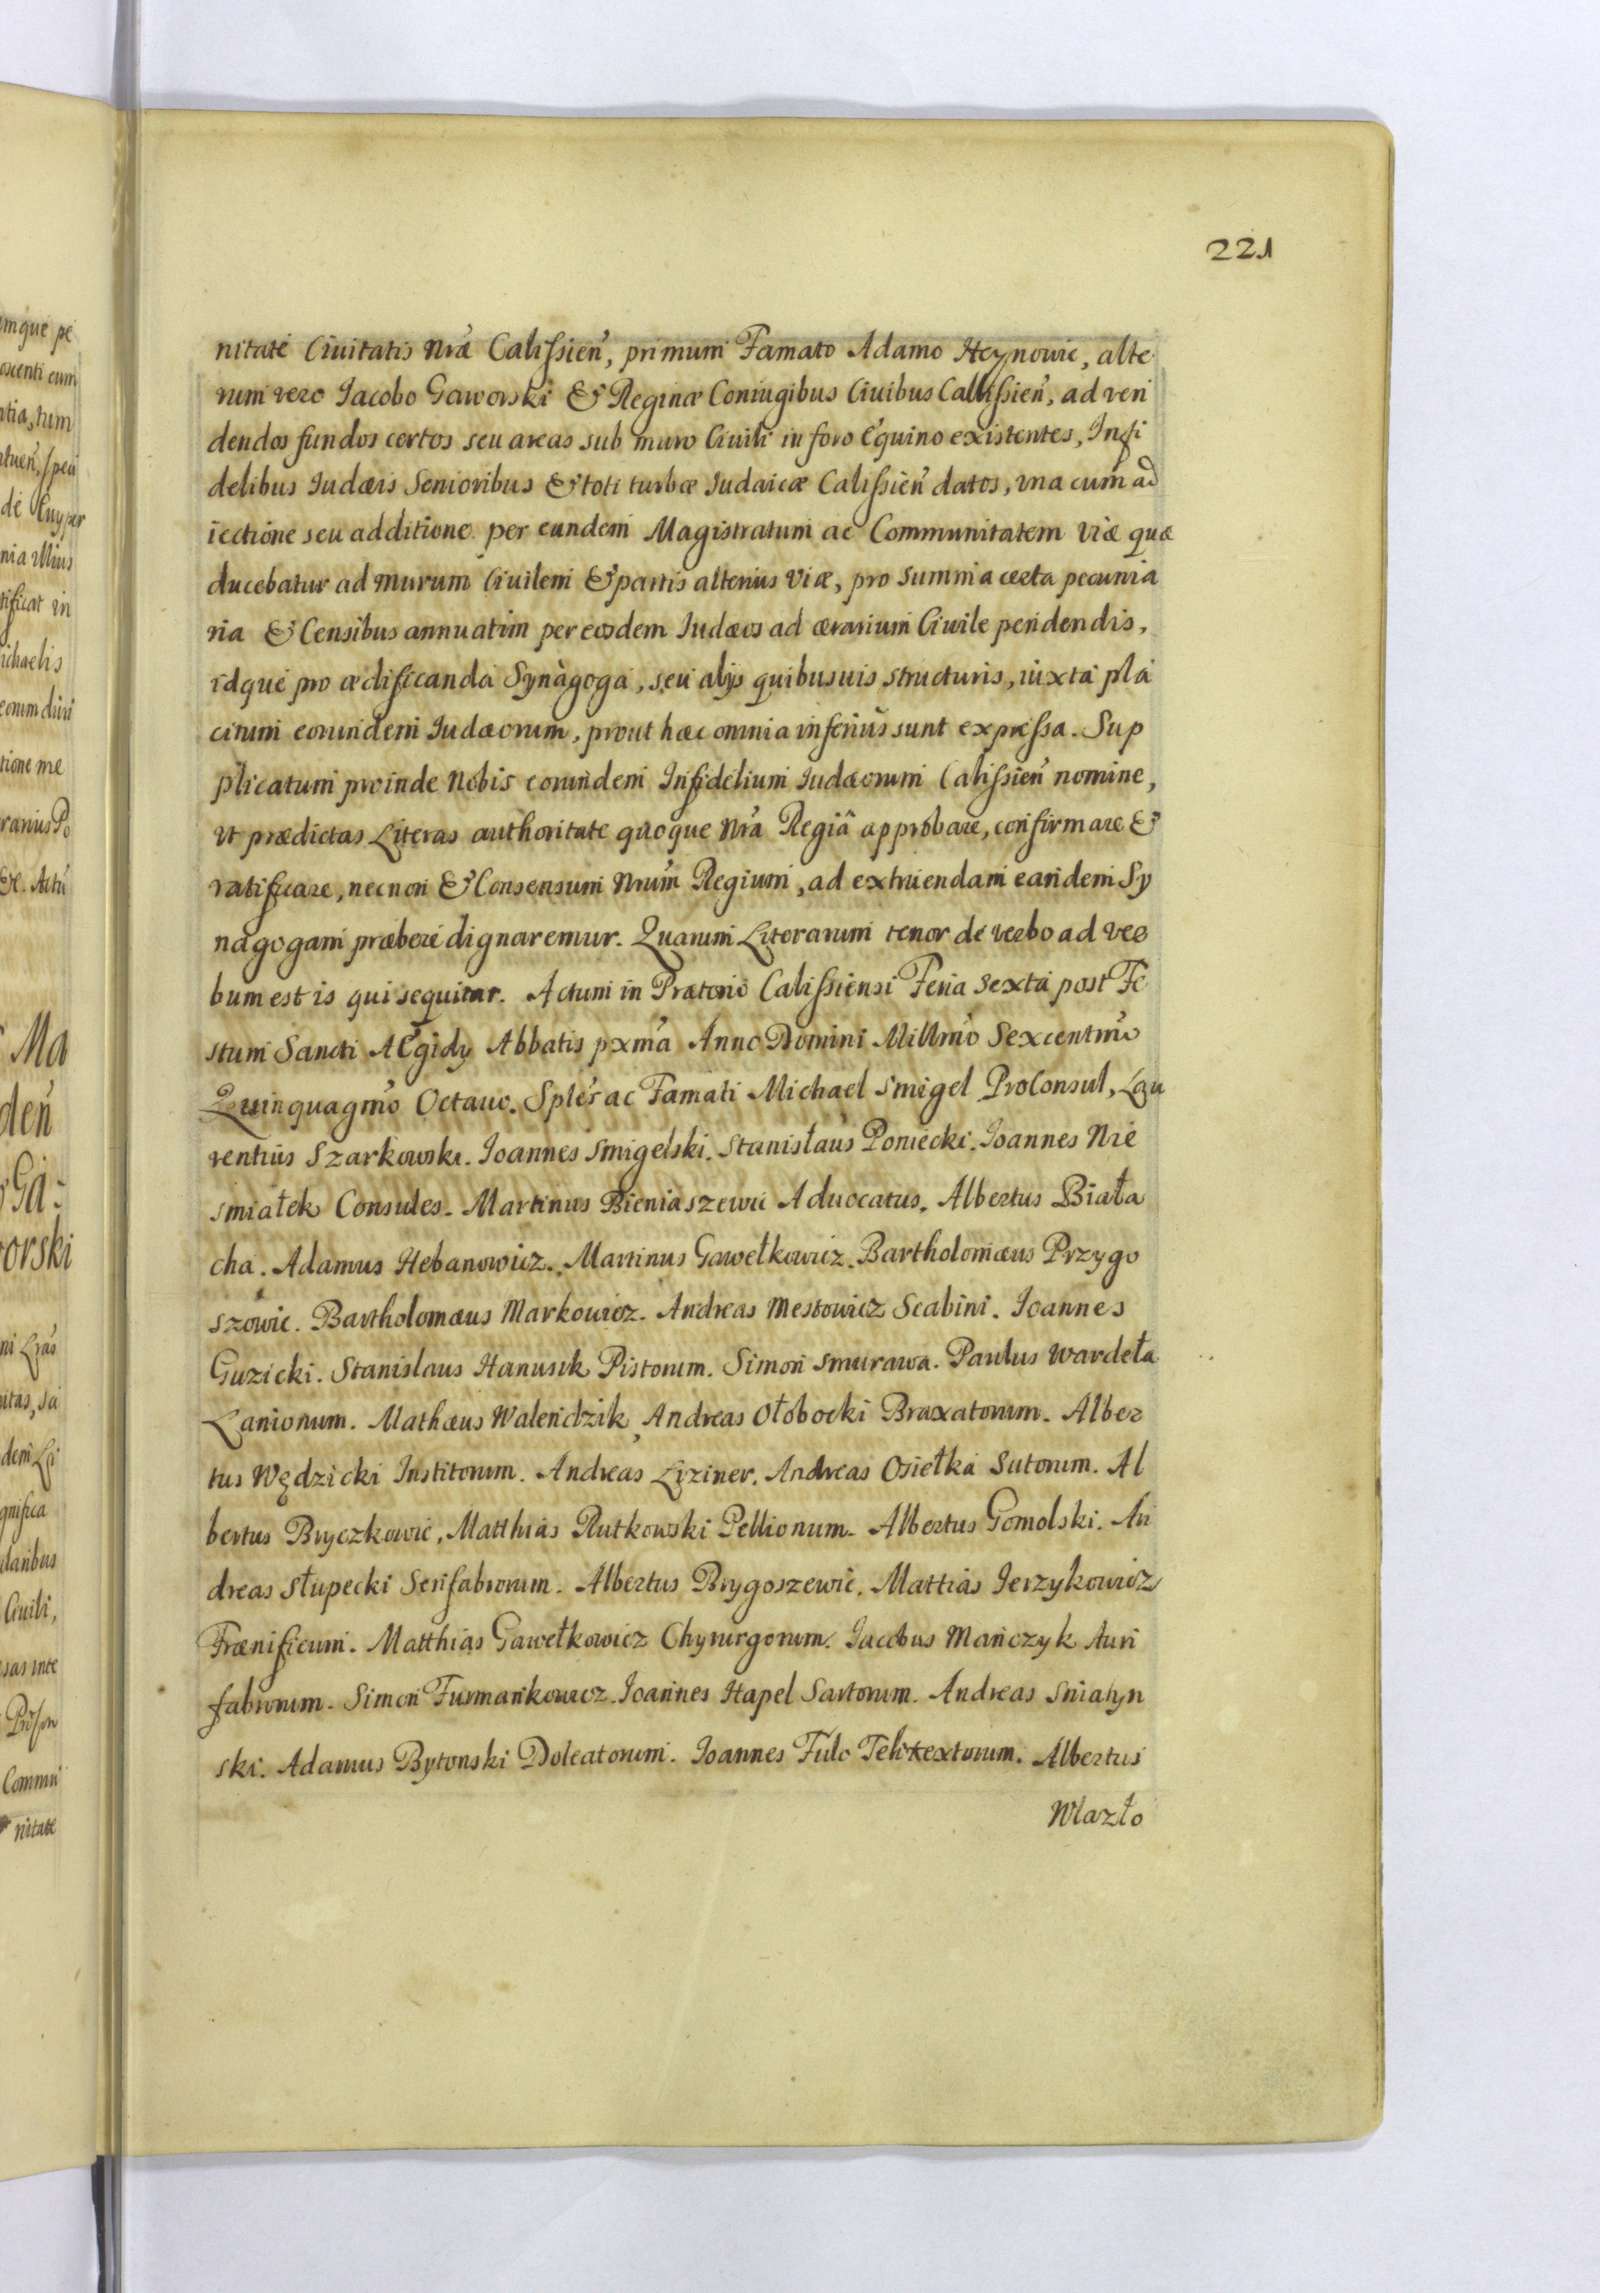 221
nitate Ciuitatis Nr̃æ Calissieñ, primum Famato Adamo Heynowic, alte
rum vero Iacobo Gaworski & Reginæ Coniugibus Ciuibus Callissieñ, ad ven
dendos fundos certos seu areas sub muro Ciuili in foro Equino existentes, Infi
delibus Iudæis Senioribus & toti turbæ Iudaicæ Calissieñ datos, vna cum ad
iectione seu additione per eundem Magistratum ac Communitatem viæ quæ
ducebatur ad murum Ciuilem & partis alterius viæ, pro summa certa pecunia
ria & Censibus annuatim per eosdem Iudæos ad ærarium Ciuile pendendis,
idque pro ædificanda Synagoga, seu alijs quibusuis structuris, iuxta pla
citum eorundem Iudæorum, prout hæc omnia inferius sunt expressa. Sup
plicatum proinde Nobis eorundem Infidelium Iudæorum Calissieñ nomine,
vt prædictas Literas authoritate quoque Nr̃a Regiâ approbare, confirmare &
ratificare, necnon & Consensum Nr̃um Regium, ad extruendam eandem Sy
nagogam præbere dignaremur. Quarum Literarum tenor de verbo ad ver
bum est is qui sequitur. Actum in Prætorio Calissiensi Feria Sexta post Fe
stum Sancti AEgidy Abbatis pxm̃a Anno Domini Millm̃o Sexcentm̃o
Quinquagm̃o Octauo. Spler̃ ac Famati Michael Smigel ProConsul, Lau
rentius Szarkowski. Ioannes Smigelski. Stanisłaus Poniecki. Ioannes Nie
smiałek Consules. Martinus Bieniaszewic Aduocatus. Albertus Biała
cha. Adamus Hebanowicz. Martinus Gawełkowicz. Bartholomæus Przygo
szowic. Bartholomæus Markowicz. Andreas Mestowicz Scabini. Ioannes
Guzicki. Stanislaus Hanusik Pistorum. Simon Smurawa. Paulus Wardeła
Lanionum. Mathæus Walendzik, Andreas Ołobocki Braxatorum. Alber
tus Wędzicki Institorum. Andreas Liziner. Andreas Osiełka Sutorum. Al
bertus Bryczkowic, Matthias Rutkowski Pellionum. Albertus Gomolski. An
dreas Słupecki Serifabrorum. Albertus Brygoszewic. Mattias Ierzykowicz
Frænificum. Matthias Gawełkowicz Chyrurgorum. Iacobus Mańczyk Auri
fabrorum. Simon Furmankowicz. Ioannes Hapel Sartorum. Andreas Sniatyn
ski. Adamus Bytonski Doleatorum. Ioannes Fulo Telitextorum. Albertus
Wlazło